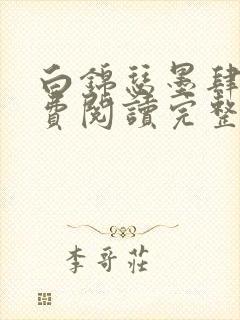 白錦瑟墨肆
費閱讀完整
李哥莊